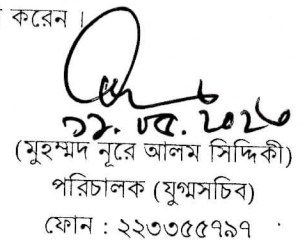 করেন।
১২. ০৫. ২০২৬
(মুহম্মদ নূরে আলম সিদ্দিকী)
পরিচালক (যুগ্মসচিব)
ফোন : ২২৩৩৫৫৭৯৭